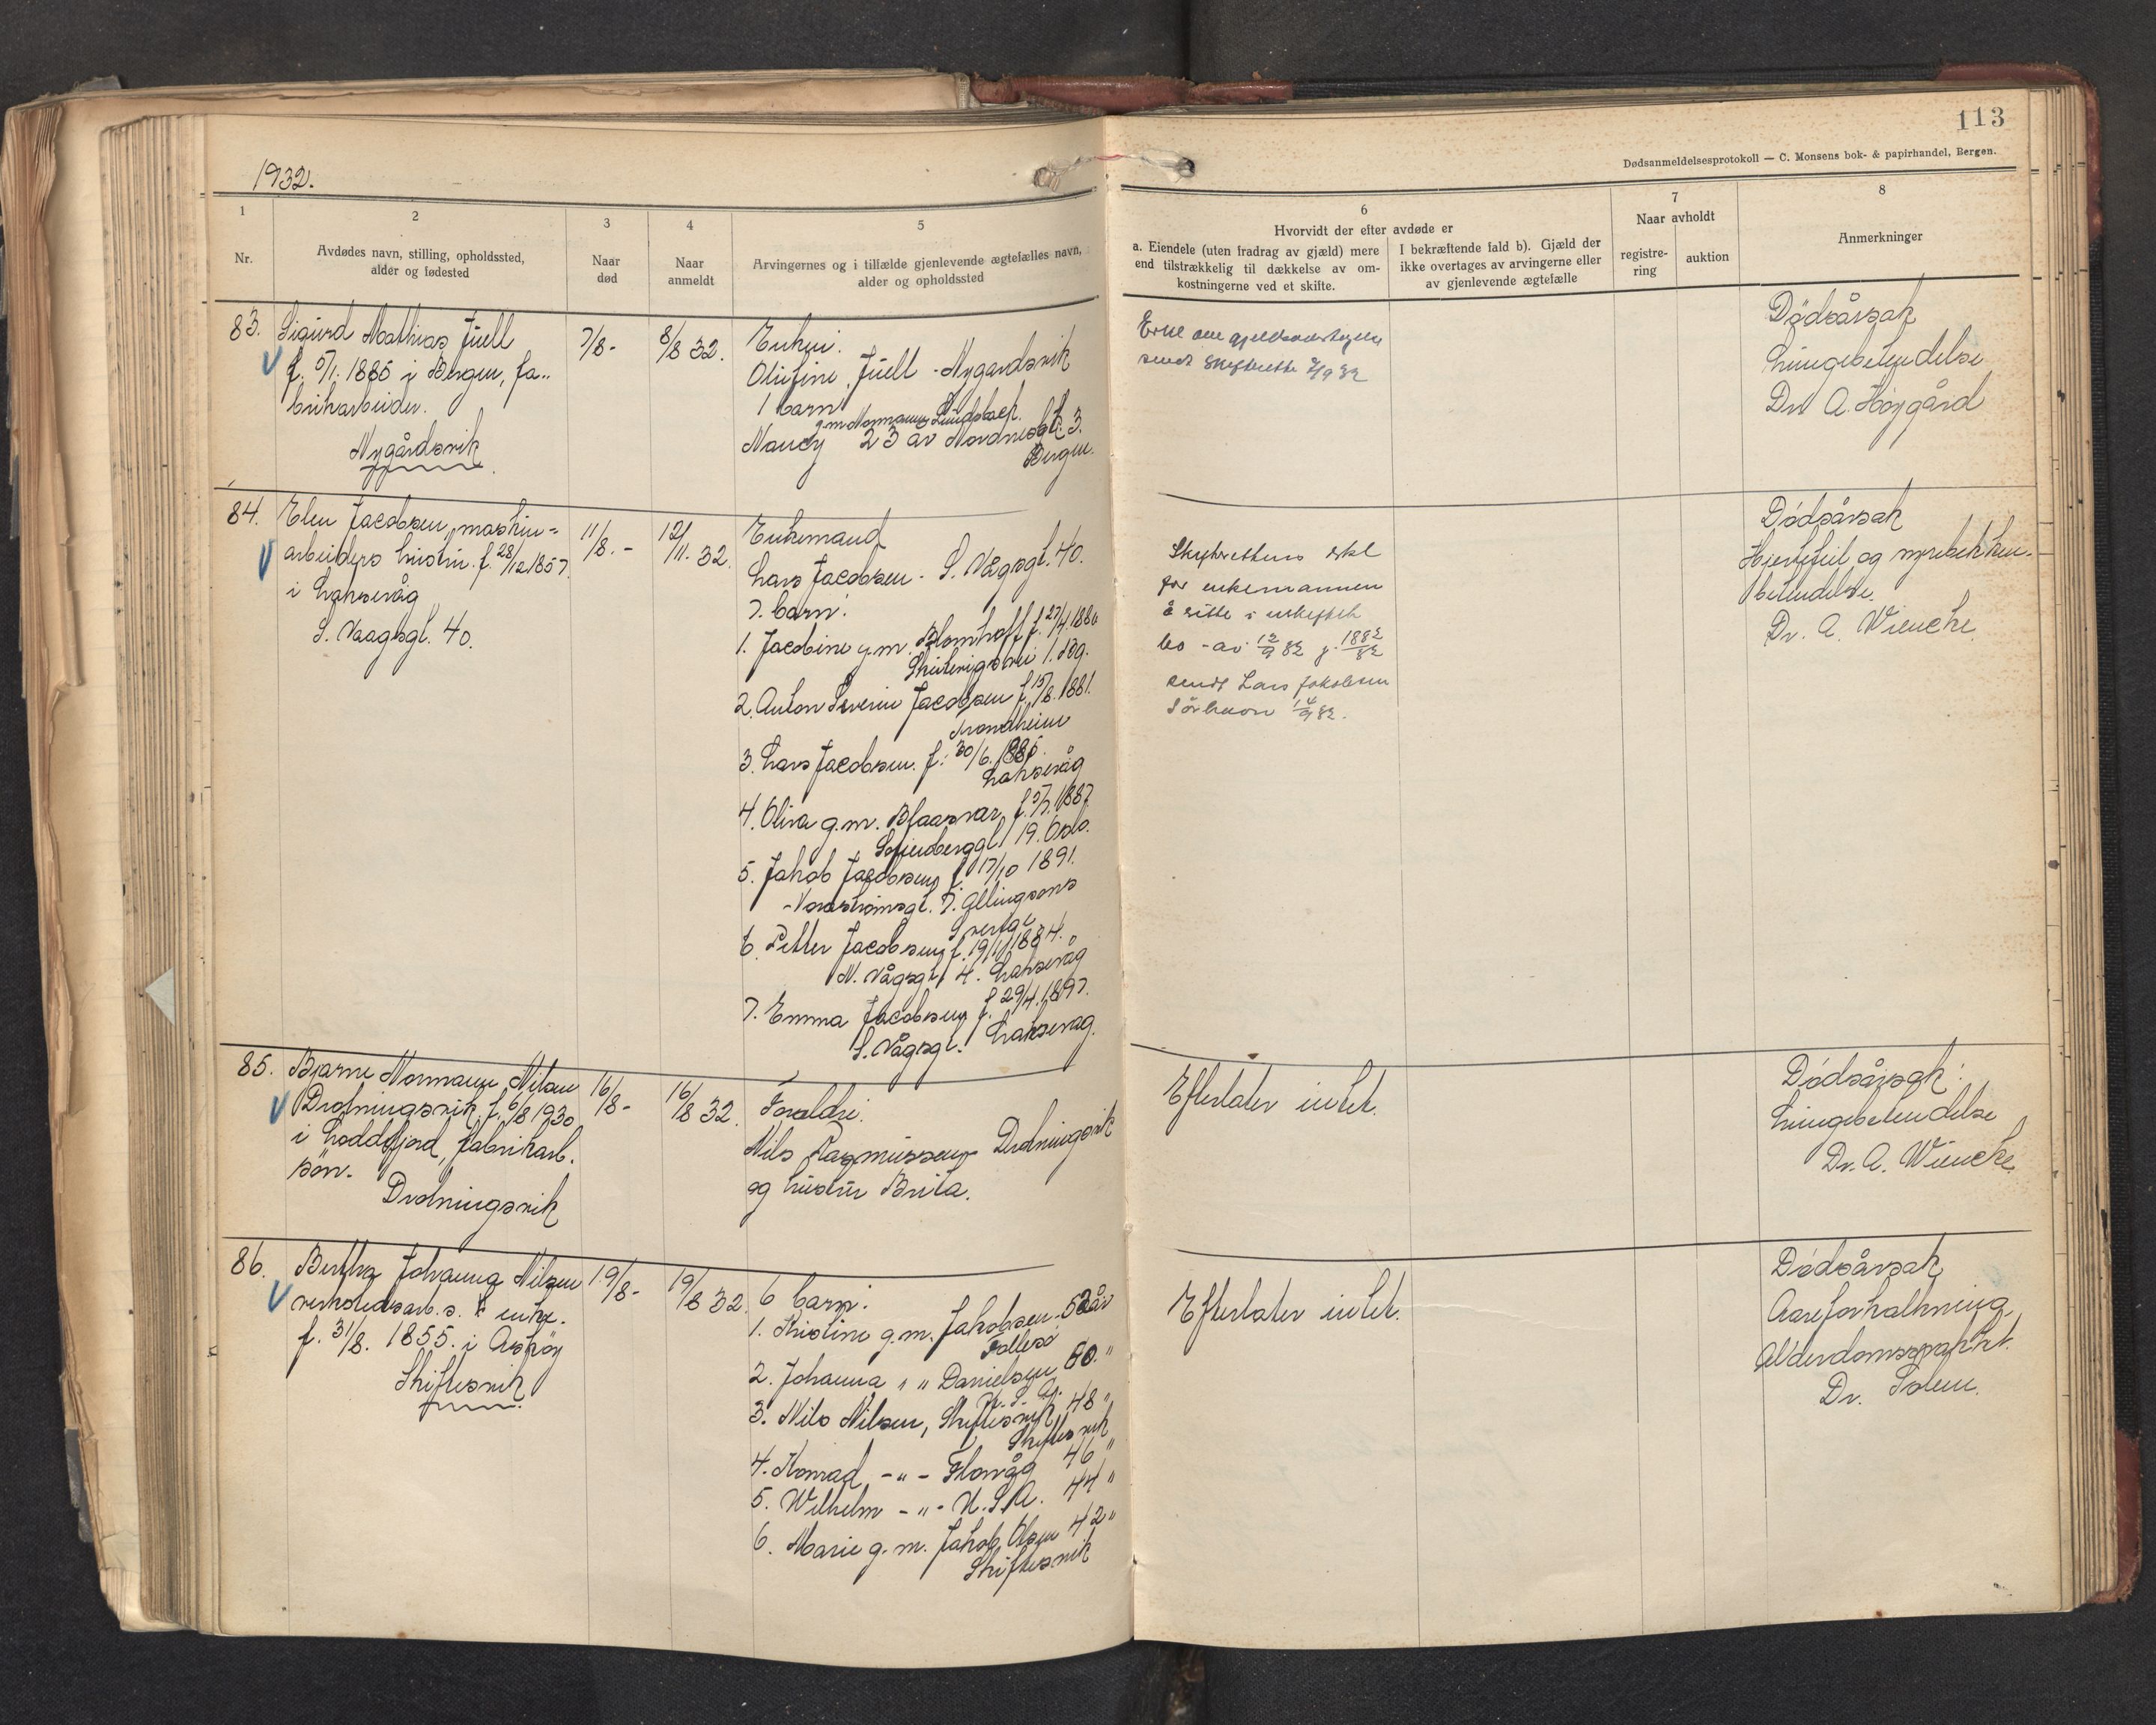 1932.
113
Dødsanmeldelsesprotokoll — C. Monsens bok- & papirhandel, Bergen.
1
Nr.
2
Avdødes navn, stilling, opholdssted,
alder og fødested
3
Naar
død
4
Naar
anmeldt
5
Arvingernes og i tilfælde gjenlevende ægtefælles navn,
alder og opholdssted
6
Hvorvidt der efter avdøde er
a. Eiendele (uten fradrag av gjæld) mere
end tilstrækkelig til dækkelse av om-
kostningerne ved et skifte.
I bekræftende fald b). Gjæld der
ikke overtages av arvingerne eller
av gjenlevende ægtefælle
7
Naar avholdt
registre-
ring
auktion
8
Anmerkninger
83.
Sigurd Mathias Juell
f. 5/1. 1885 i Bergen, fa-
brikarbeider.
Nygårdsvik
7/8-
8/8 32.
Enke:
Olufine Juell - Nygardsvik
1 barn
g.m. Normann Lundsbak.
Nancy 23 av Nordnesgt. 3.
Bergen.
Erkl om gjeldsovertagelse
sendt Skifterette 2/9 32
Dødsårsak
Lungebetendelse
Dr. A. Høygård
84.
Elen Jacobsen, maskin-
arbeiders hustru. f. 28/12 1857.
i Laksevåg
S. Vaagsgt. 40.
11/8. -
12/11. 32.
Enkemand
Lars Jacobsen - S. Vågsgt. 40.
7. barn:
1. Jacobine g.m. Blomhoff f. 27/4 1880
Skuteviksvei 1. Bg.
2. Anton Severin Jacobsen f. 15/8. 1881.
Trondheim
3. Lars Jacobsen. f. 30/6. 1885.
Laksevåg
4. Oliva g.m. Blaasvær, f. 5/7. 1887
Sofienberggt 19. Oslo.
5. Jakob Jacobsen f. 17/10 1891.
Sverige
6. Petter Jacobsen f. 19/1 1884.
N. Vågsgt. 4. Laksevåg
7. Emma Jacobsen f. 29/4. 1897.
S. Vågsgt. Laksevag.
Skifterettens erkl
for enkemannen
å sitte i uskiftet
bo - av 12/9 32 j. 1882/32
sendt Lars Jakobsen
14/9 32.
Dødsårsak
Hjertefeil og nyrebekken-
betendelse.
Dr. A. Wiencke
85.
Bjarne Normann Nilsen
Drotningsvik, f. 6/8 1930
i Loddefjord, fabrikarb.
sön.
Drotningsvik
16/8-
16/8 32.
Foreldre:
Nils Rasmussen Drotningsvik
og hustru Brita.
Efterlater intet.
Dødsårsak:
Lungebetendelse
Dr. A. Wiencke
86.
Bertha Johanna Nilsen
verkstedsarb. s. enke.
f. 31/8. 1855. i Askøy
Skiftesvik
19/8-
19/8 32.
6 barn:
1. Kristine g.m. Jakobsen. 52 år
Follesø
2. Johanna " " Danielsen 50. "
U.S.A.
3. Nils Nilsen, Skiftesvik 48 "
Skiftesvik
4. Konrad - " - Florvåg 46 "
5. Wilhelm - " - U.S.A. 44 "
6. Marie g.m. Jakob Olsen 42 "
Skiftesvik
Efterlater intet.
Dødsårsak
Aareforkalkning
Alderdomssvakhet.
Dr. Solem.